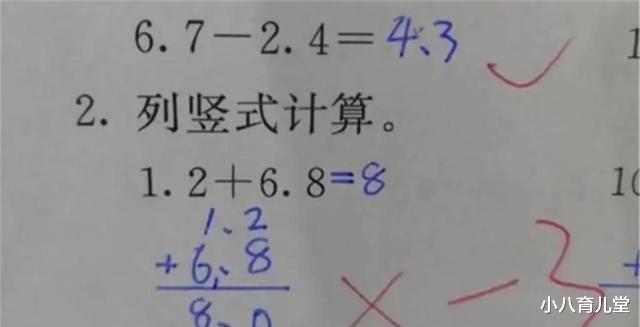 6.7－2.4＝4.3
1
2. 列竖式计算。
1.2＋6.8=8
10
1.2
+6.8
+
8.0
－3
小八育儿堂